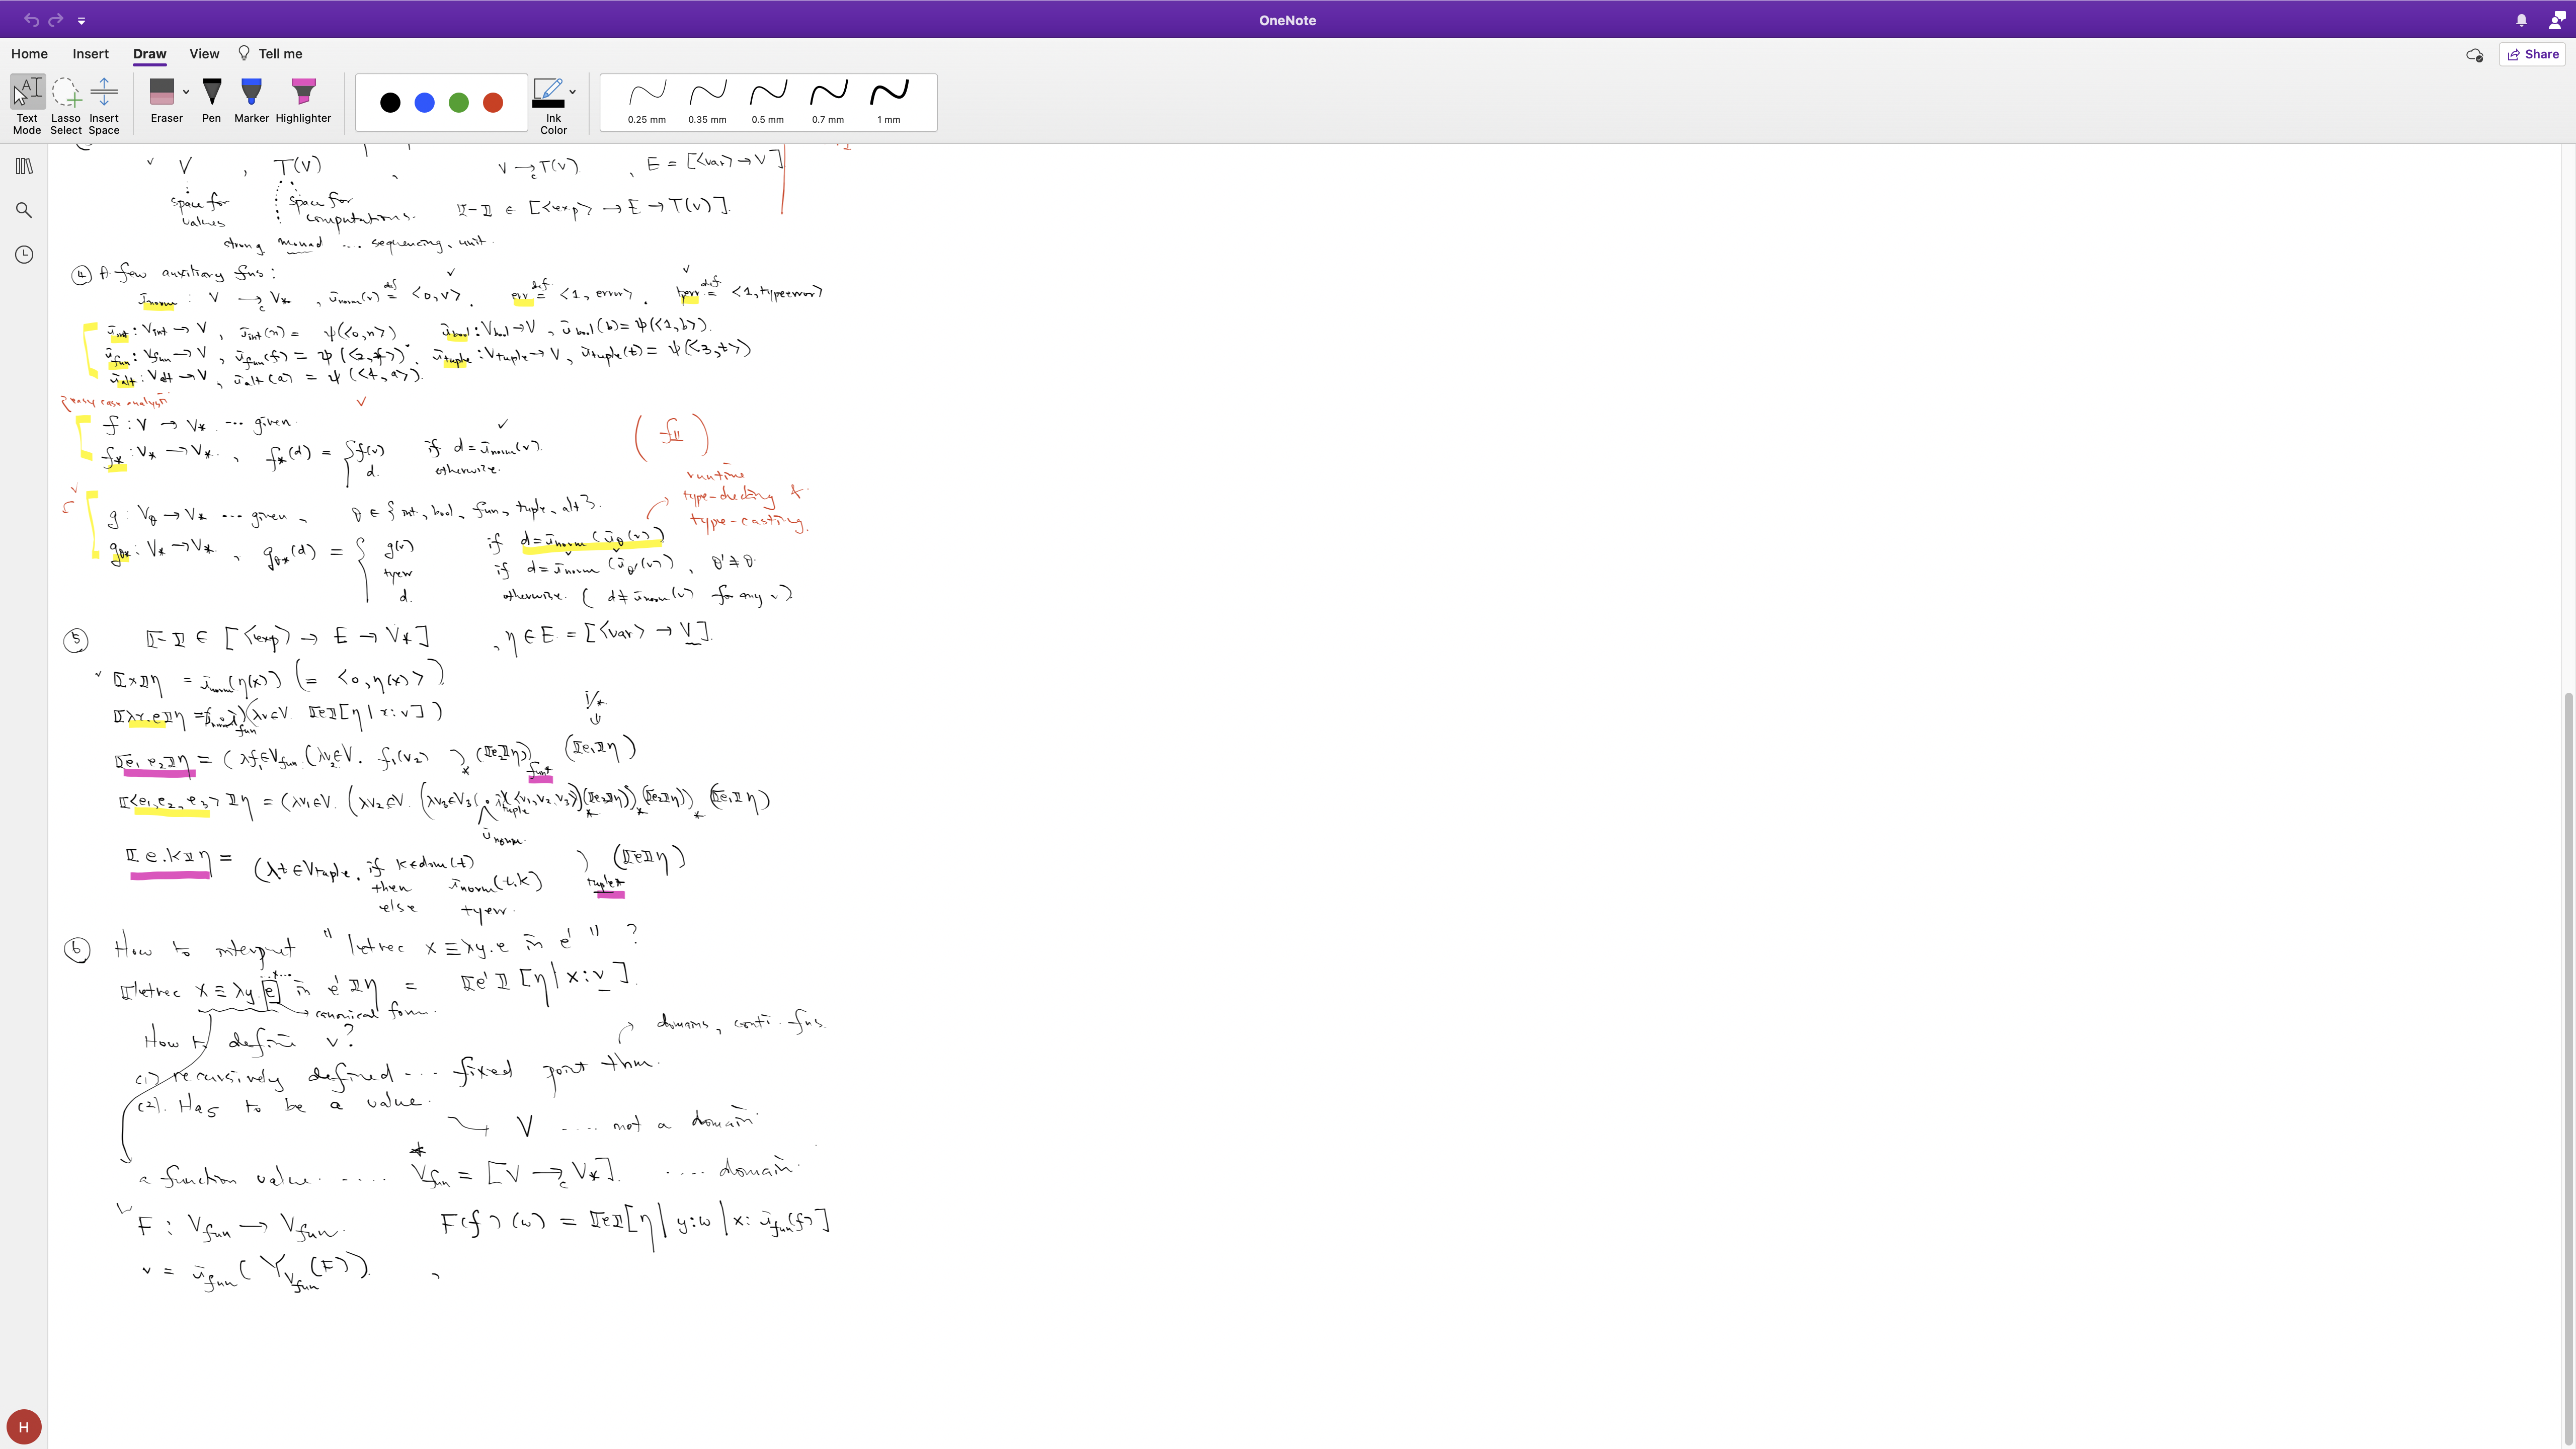 OneNote
Home Insert Draw View Tell me
Share
Text Mode
Lasso Select
Insert Space
Eraser
Pen
Marker
Highlighter
Ink Color
0.25 mm
0.35 mm
0.5 mm
0.7 mm
1 mm
V , T(V) , V →c T(V) , E = [<var> → V]
space for values
space for computations.
⟦-⟧ ∈ [<exp> → E → T(V)].
strong monad ... sequencing, unit.
④ A few auxiliary fns :
ι norm : V →c V* , ι norm(v) def= <0, v> . err def= <1, error> . tyerr def= <1, typeerror>
ι int : V int → V , ι int(n) = ψ(<0, n>) ι bool : V bool → V , ι bool(b) = ψ(<1, b>).
ι fun : V fun → V , ι fun(f) = ψ(<2, f>) . ι tuple : V tuple → V , ι tuple(t) = ψ(<3, t>)
ι alt : V alt → V , ι alt(a) = ψ(<4, a>).
easy case analysis
f : V → V* ... given.
f* : V* → V* , f*(d) = { f(v) if d = ι norm(v).
d. otherwise.
( f⊥⊥ )
runtime type-checking & type-casting.
g : Vθ → V* ... given , θ ∈ {int, bool, fun, tuple, alt}.
gθ* : V* → V* , gθ*(d) = { g(v) if d = ι norm(ιθ(v))
tyerr if d = ι norm(ιθ'(v)) , θ' ≠ θ
d. otherwise. ( d ≠ ι norm(v) for any v )
⑤ ⟦-⟧ ∈ [<exp> → E → V*] , η ∈ E = [<var> → V].
⟦x⟧η = ι norm(η(x)) (= <0, η(x)>)
⟦λx.e⟧η = (ι norm ∘ ι fun)(λv∈V. ⟦e⟧[η | x: v])
⟦e1 e2⟧η = (λf1∈V fun. (λv2∈V. f1(v2) )* (⟦e2⟧η)) fun* (⟦e1⟧η)
⟦<e1, e2, e3>⟧η = (λv1∈V. (λv2∈V. (λv3∈V3(. ι tuple(<v1, v2, v3>))* (⟦e3⟧η))* (⟦e2⟧η))* (⟦e1⟧η)
ι norm
⟦e.k⟧η = (λt∈V tuple. if k∈dom(t) ) tuple* (⟦e⟧η)
then ι norm(t.k)
else tyerr.
⑥ How to interpret " letrec x ≡ λy.e in e' " ?
⟦letrec x ≡ λy.e in e'⟧η = ⟦e'⟧[η | x: v].
canonical form.
How to define v?
domains, conti. fns.
(1) recursively defined ... fixed point thm.
(2). Has to be a value.
V .... not a domain
a function value. .... V fun = [V →c V*]. .... domain.
F : V fun → V fun. F(f)(w) = ⟦e⟧[η | y: w | x: ι fun(f)]
v = ι fun( Y V fun (F) ).
H